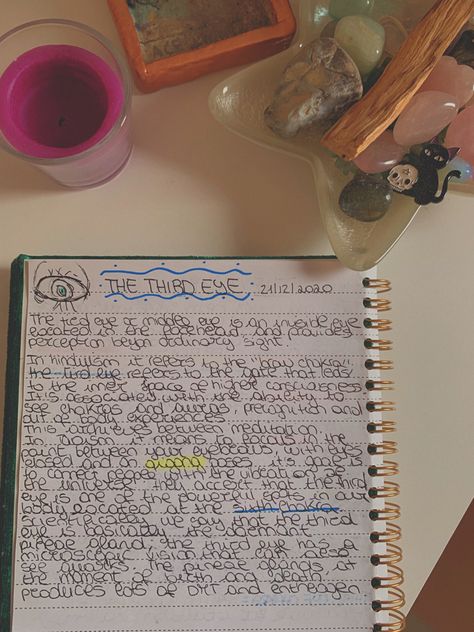 THE THIRD EYE 21/12/2020
The third eye or middle eye is an invisible eye
located at the forehead and provides
perception beyon ordinary sight.
In hinduism it refers to the "brow chakra",
the third eye refers to the gate that leads
to the inner space of higher consciousness
It is associated with the ability to
see chakras and auras, precognition and
out of body experiences.
This third eyes between meditation.
In Taoism it means to focus in the
point between eyebrows, with eyes
closed and in qigong poses, it's goal is
the universe. They assert that the third
eye is one of the powerful in our
body located at the
scientifically we say that the third
eye is basically the dormant
pineal gland, the third eye has a
microscopic vision that can also
see The pineal glands at
the moment of birth and death
produces lots of DMT and energy